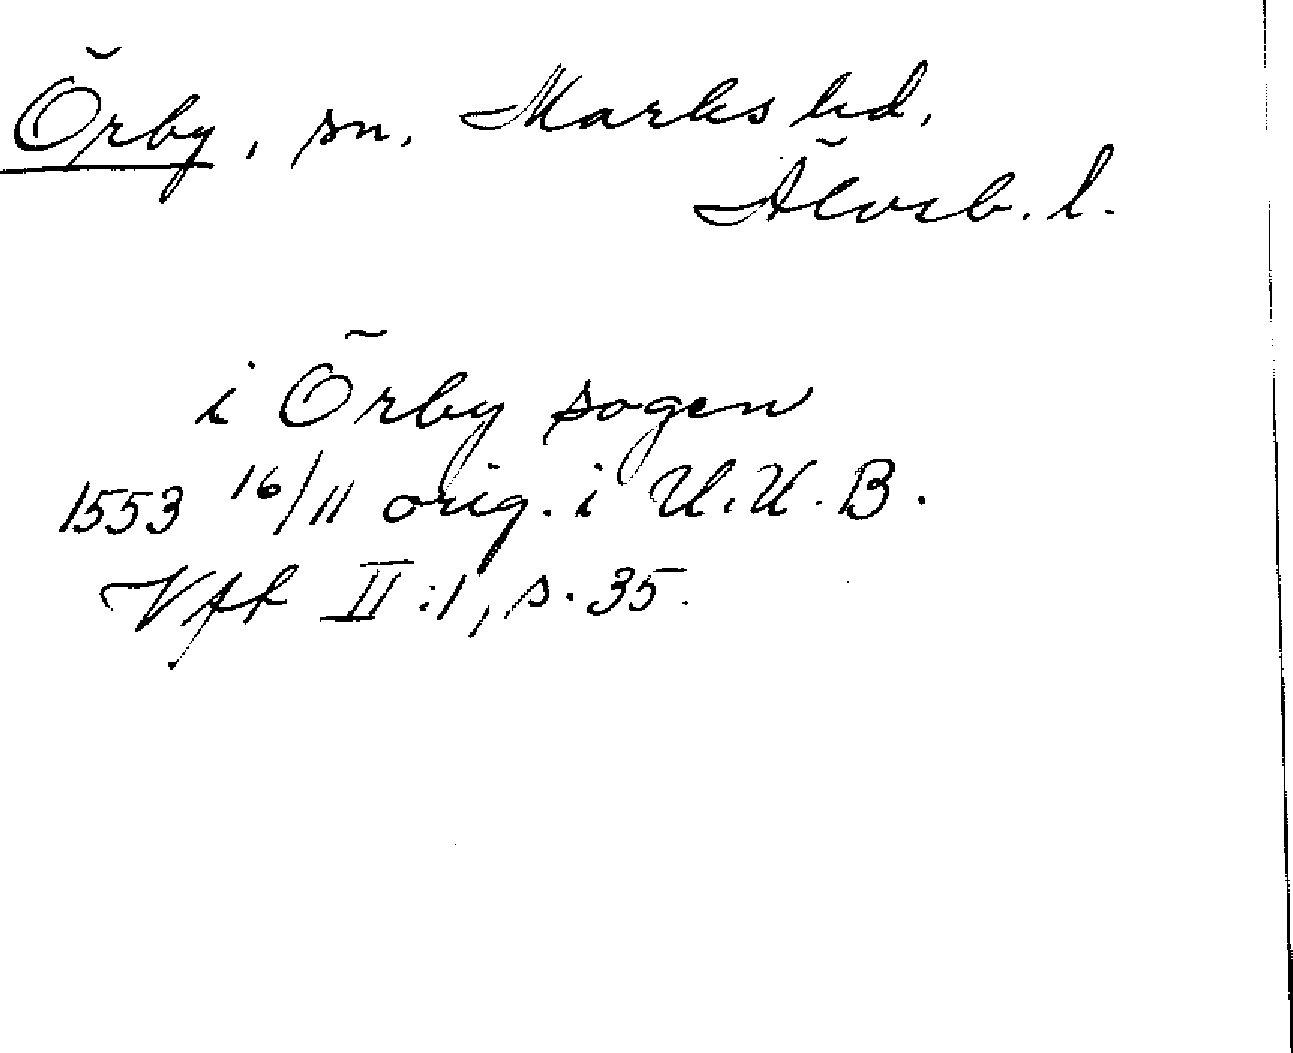 Örby, sn, Marks hd,
Älvsb. l.
i Örby sogen
1553 16/11 orig. i U.U.B.
Vff II:1, s. 35.